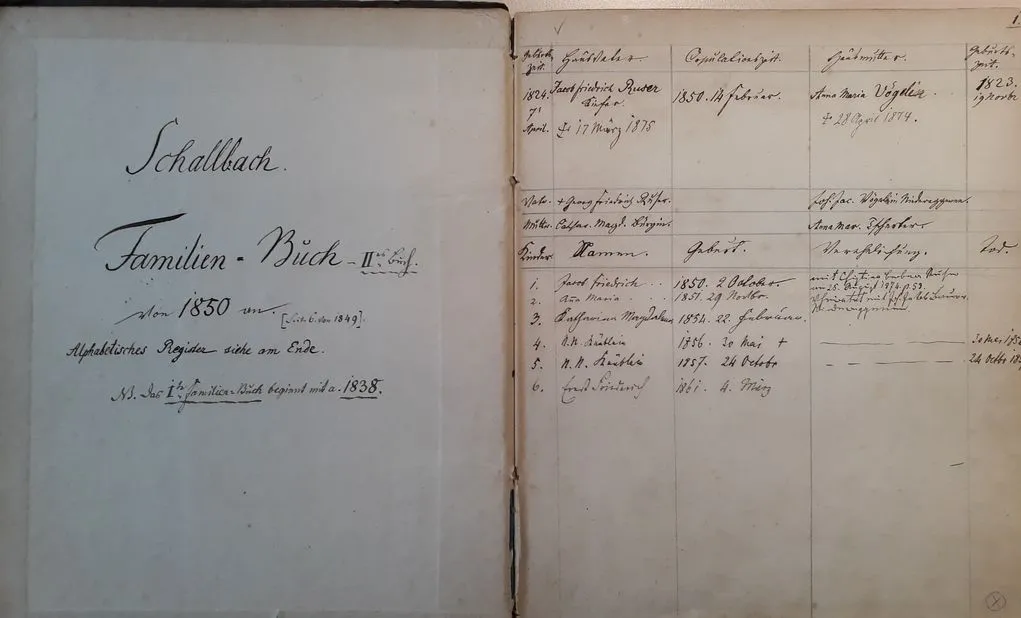 Schallbach.
Familien-Buch - IIes Buch.
von 1850 an.
[Seite 6. von 1849].
Alphabetisches Register siehe am Ende.
NB. Das Ite Familien-Buch beginnt mit a. 1838.
1.
Geburtszeit. Hausvater. Copulationszeit. Hausmutter. Geburtszeit.
1824. Jacob Friedrich Ruser 1850. 14 Februar. Anna Maria Vögelin. 1823.
7t Küfer. 19 Novbr
April. 17 März 1875 28 April 1874.
Vater. + Georg Friedrich Ruser. Joh. Jac. Vögelin Niedereggenen.
Mutter. Cathar. Magd. Bürgin. Anna Mar. Tscherter.
Kinder Namen. Geburt. Verehelichung. Tod.
1. Jacob Friedrich 1850. 2 October mit Christina
am 25. August 1874. p. 53.
2. Ana Maria 1851. 29 Novbr.
3. Katharina Magdalena 1854. 22. Februar.
4. N.N. Knäblein 1856. 30 Mai + 30 Mai
5. N.N. Knäblein 1857. 24 Octobr 24 Octbr
6. Ernst Friedrich 1861. 4. März